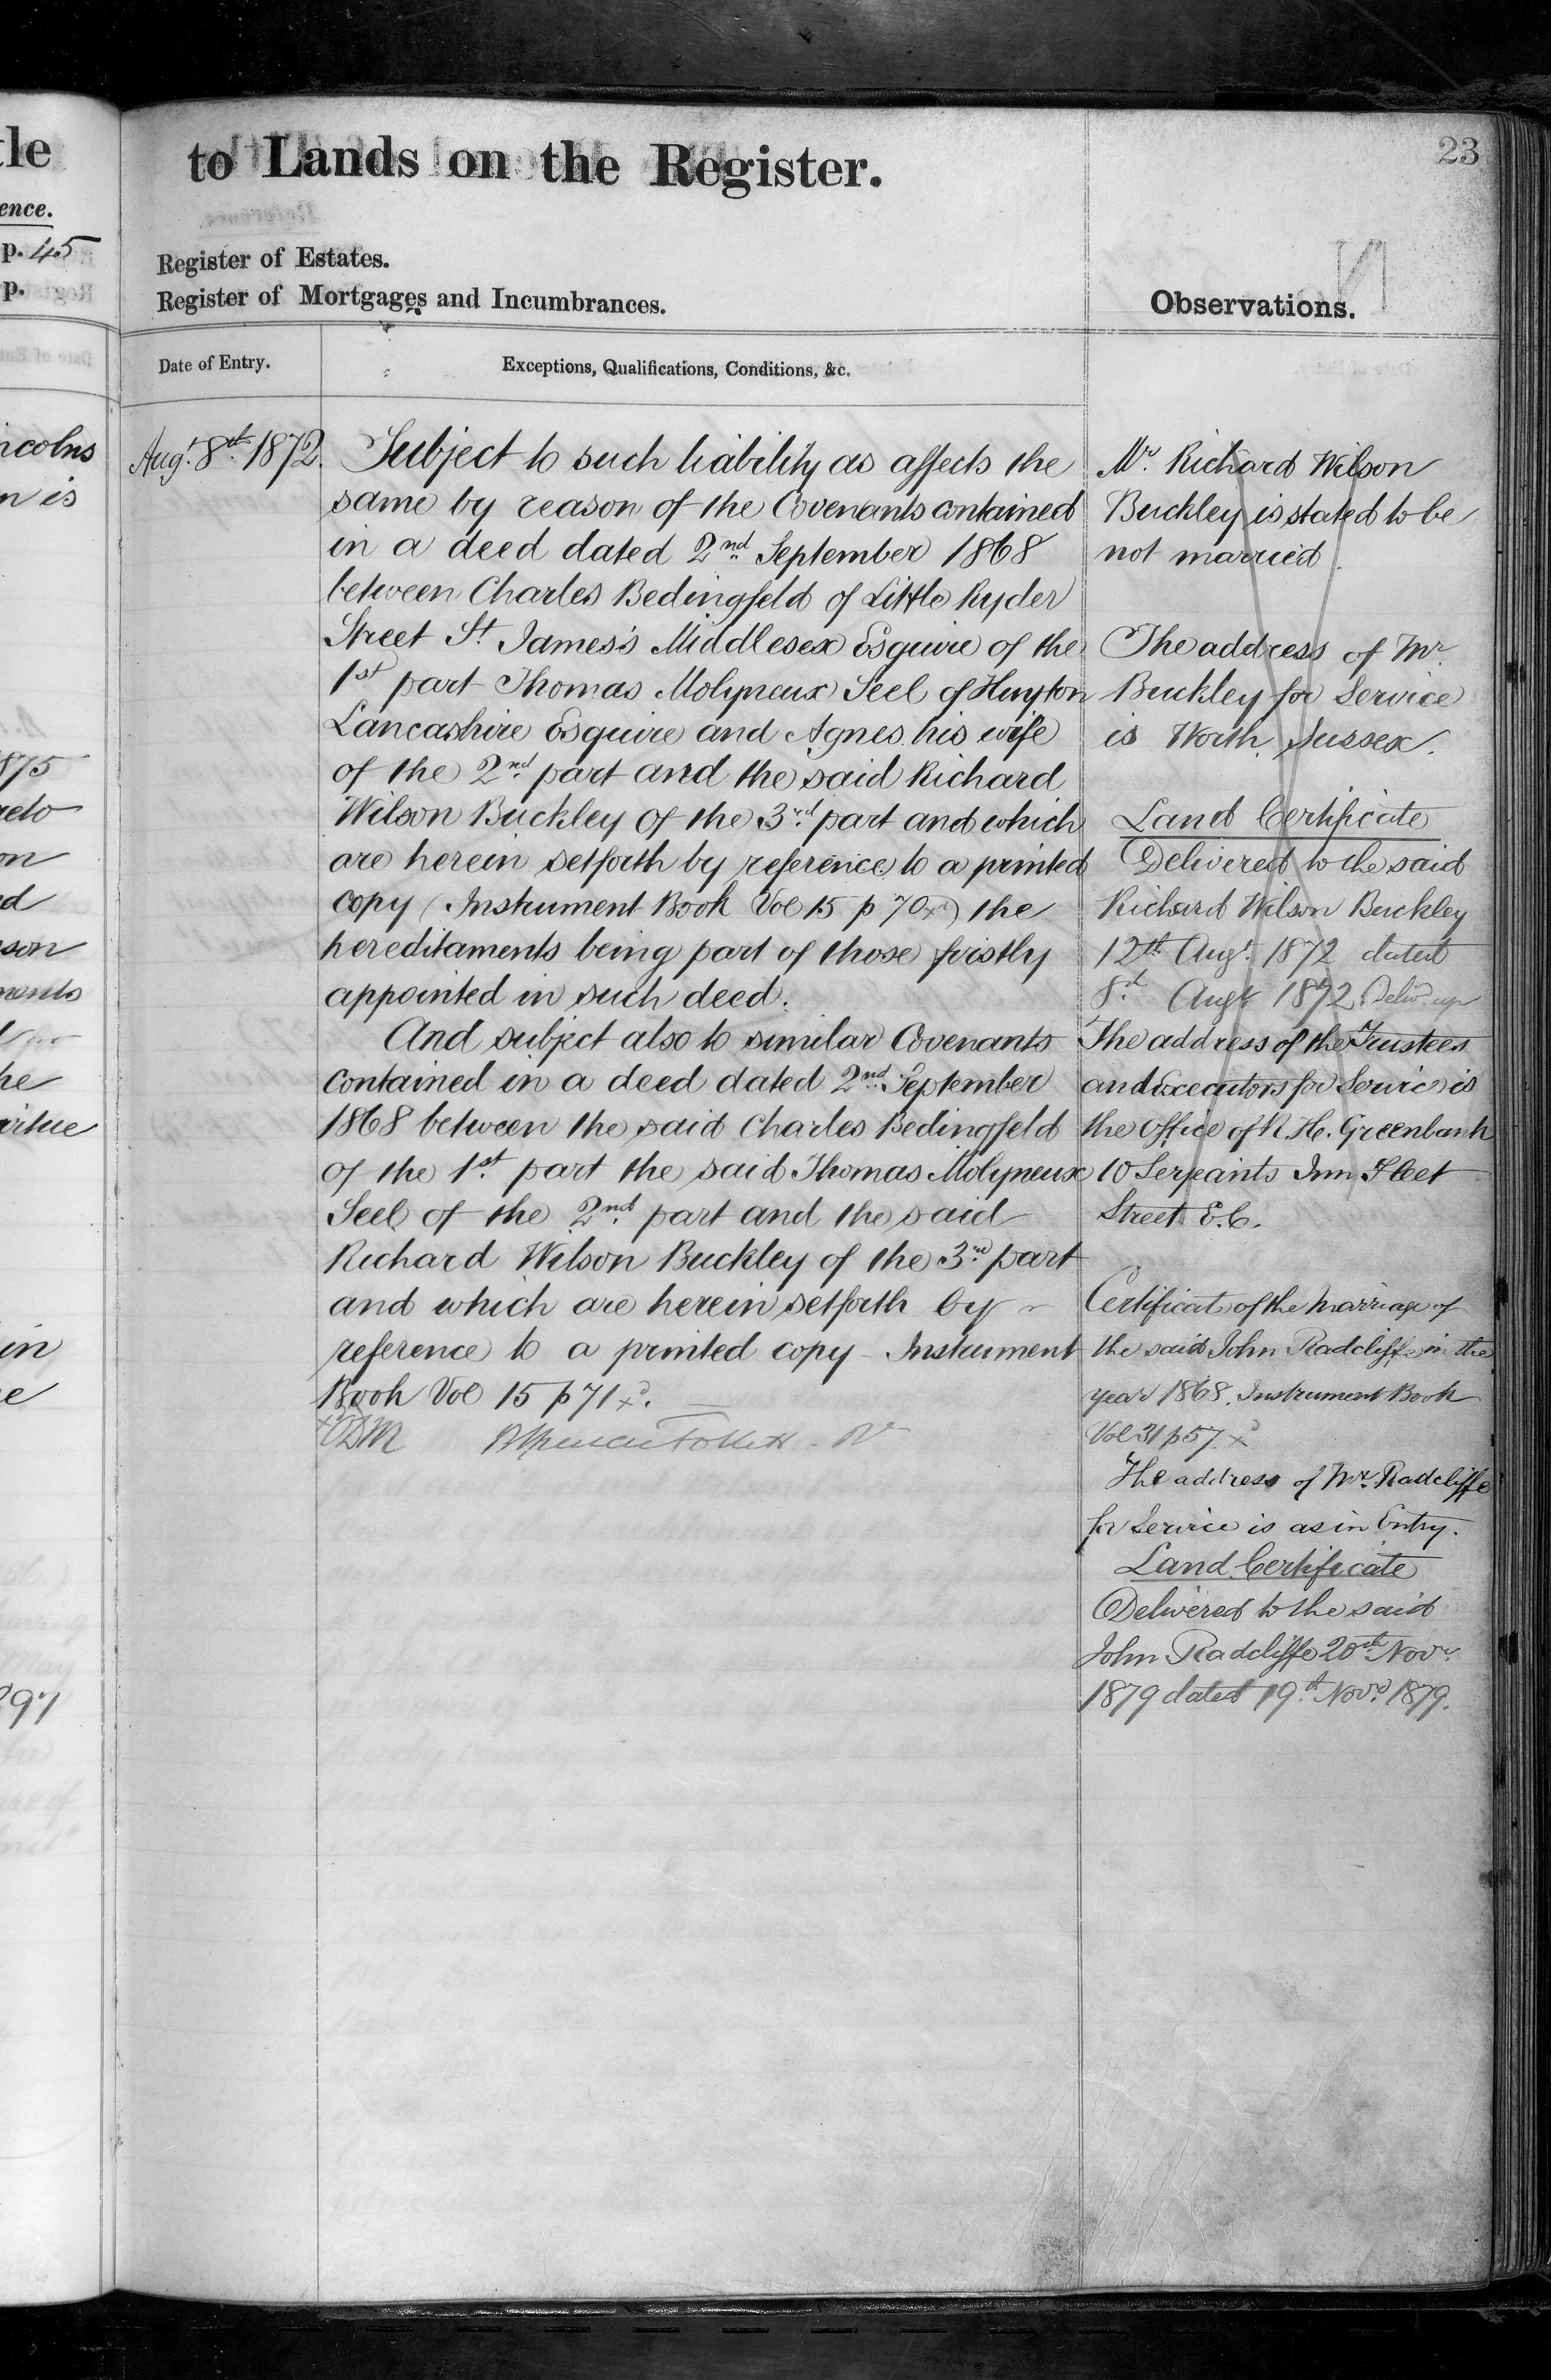 to Lands on the Register.
23
Register of Estates.
Register of Mortgages and Incumbrances.
Observations.
Date of Entry.
Exceptions, Qualifications, Conditions, &c.
Augt. 8th 1872.
Subject to such liability as affects the
same by reason of the Covenants contained
in a deed dated 2nd September 1868
between Charles Bedingfeld of Little Ryder
Street St. James's Middlesex Esquire of the
1st part Thomas Molyneux Seel of Huyton
Lancashire Esquire and Agnes his wife
of the 2nd part and the said Richard
Wilson Buckley of the 3rd part and which
are herein setforth by reference to a printed
copy (Instrument Book Vol 15 p 70x) the
hereditaments being part of those firstly
appointed in such deed.
And subject also to similar Covenants
contained in a deed dated 2nd September
1868 between the said Charles Bedingfeld
of the 1st part the said Thomas Molyneux
Seel of the 2nd part and the said
Richard Wilson Buckley of the 3rd part
and which are herein setforth by
reference to a printed copy - Instrument
Book Vol 15 p 71 x.
Mr. Richard Wilson
Buckley is stated to be
not married.
The address of Mr.
Buckley for Service
is Worth Sussex.
Land Certificate
Delivered to the said
Richard Wilson Buckley
12th Augt. 1872 dated
8th Augt 1872 Delivd. up
The address of the Trustees
and Executors for Service is
the Office of R. H. Greenbank
10 Serjeants Inn Fleet
Street E.C.
Certificate of the Marriage of
the said John Radcliffe in the
year 1868. Instrument Book
Vol 31 p 57. x
The address of Mr. Radcliffe
for Service is as in Entry.
Land Certificate
Delivered to the said
John Radcliffe 20th Novr.
1879 dated 19th Novr. 1879.
tle
ence.
p. 45
p.
ncolns
n is
875
reto
on
nd
son
ments
he
virtue
in
897